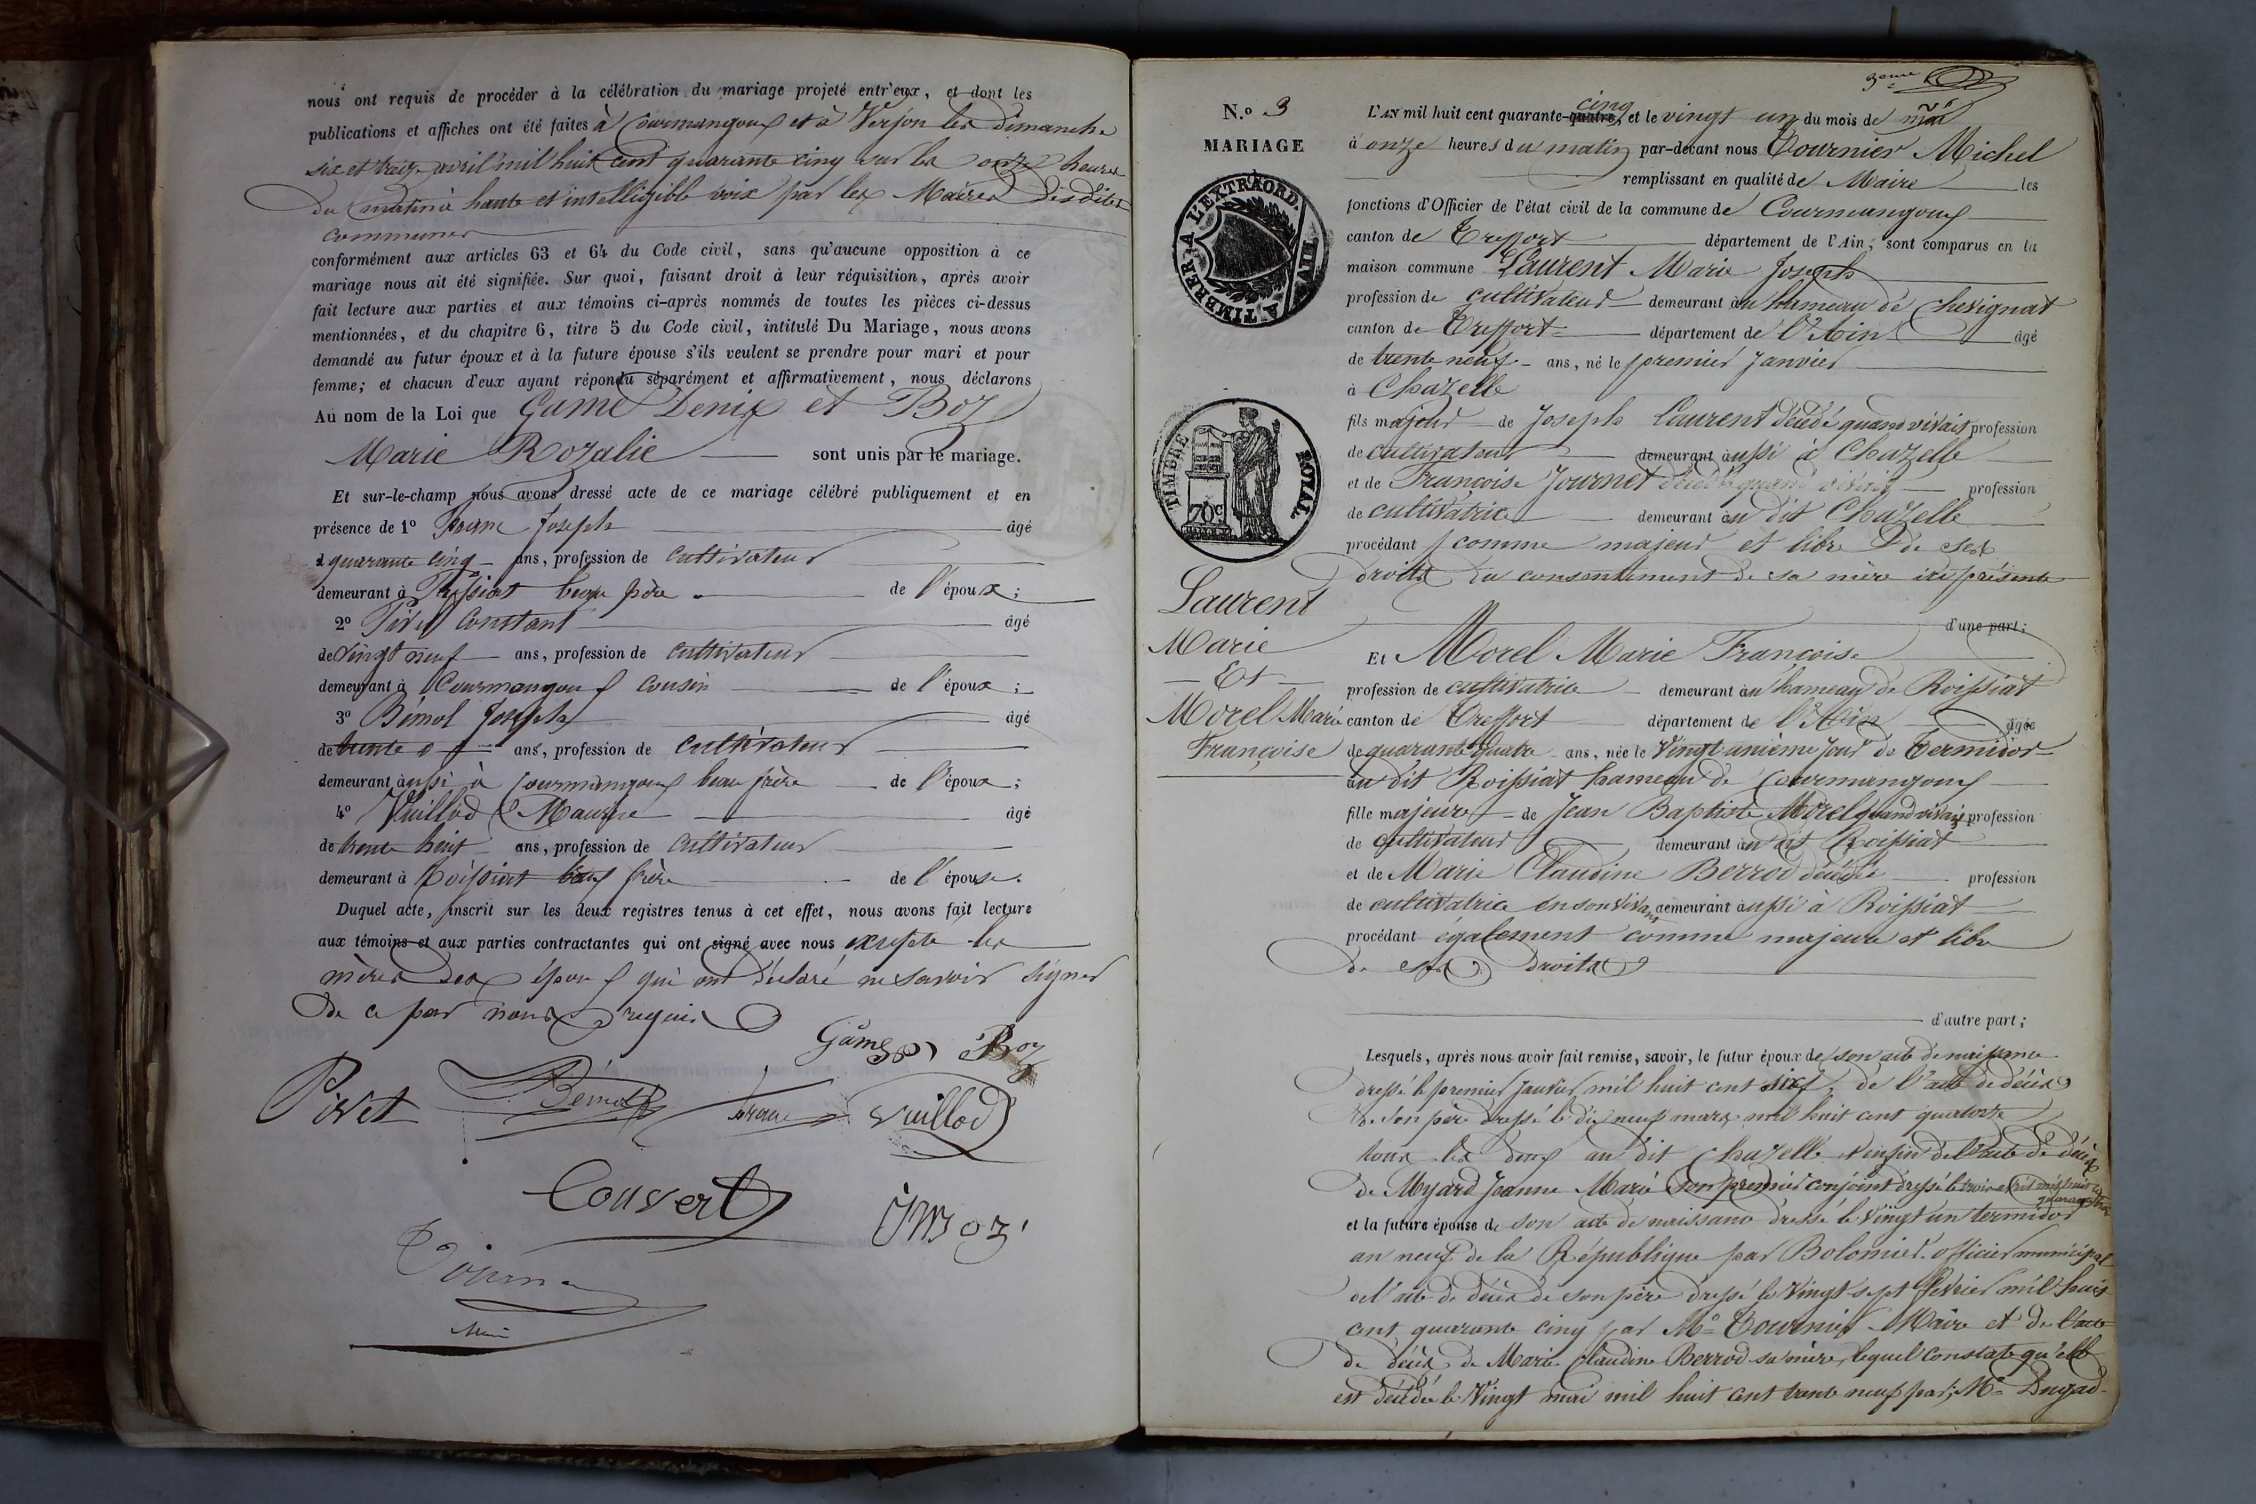 nous ont requis de procéder à la célébration du mariage projeté entr'eux, et dont les
publications et affiches ont été faites à Courmangoux et à Verjon les dimanche
six et treize avril mil huit cent quarante cinq sur les onze heures
du matin à haute et intelligible voix par les Maires desdites
communes
conformément aux articles 63 et 64 du Code civil, sans qu'aucune opposition à ce
mariage nous ait été signifiée. Sur quoi, faisant droit à leur réquisition, après avoir
fait lecture aux parties et aux témoins ci-après nommés de toutes les pièces ci-dessus
mentionnées, et du chapitre 6, titre 5 du Code civil, intitulé Du Mariage, nous avons
demandé au futur époux et à la future épouse s'ils veulent se prendre pour mari et pour
femme; et chacun d'eux ayant répondu séparément et affirmativement, nous déclarons
Au nom de la Loi que Game Denix et Boz
Marie Rozalie sont unis par le mariage.
Et sur-le-champ nous avons dressé acte de ce mariage célébré publiquement et en
présence de 1º Joseph âgé
d quarante cinq ans, profession de cultivateur
demeurant à Roissiat beau père de l'époux;
2º Pivet Constant âgé
de vingt neuf ans, profession de cultivateur
demeurant à Courmangoux cousin de l'époux;
3º Bémol Joseph âgé
de trente ans, profession de cultivateur
demeurant aussi à Courmangoux beau frère de l'époux;
4º Vuillod Maurice âgé
de trente huit ans, profession de cultivateur
demeurant à Roissiat beau frère de l'épouse.
Duquel acte, inscrit sur les deux registres tenus à cet effet, nous avons fait lecture
aux témoins et aux parties contractantes qui ont signé avec nous excepté les
mères des époux qui ont déclaré ne savoir signer
de ce par nous requis
Game Boz
Pivet Bémol Vuillod
Convert
Maire
3eme
N.º 3
MARIAGE
A TIMBRER A L'EXTRAORD.
TIMBRE ROYAL
70c
Laurent
Marie
Et
Morel Marie
Françoise
L'AN mil huit cent quarante-quatre, cinq et le vingt un du mois de mai
à onze heures du matin par-devant nous Tournier Michel
remplissant en qualité de Maire les
fonctions d'Officier de l'état civil de la commune de Courmangoux
canton de Treffort département de l'Ain, sont comparus en la
maison commune Laurent Marie Joseph
profession de cultivateur demeurant au hameau de Chevignat
canton de Treffort département de l'Ain âgé
de trente neuf ans, né le premier Janvier
à Chazelle
fils majeur de Joseph Laurent décédé quand vivait profession
de cultivateur demeurant aussi à Chazelle
et de Françoise Journet décédé quand vivait profession
de cultivatrice demeurant au dit Chazelle
procédant comme majeur et libre de ses
droits du consentement de sa mère ici présente
d'une part;
Et Morel Marie Françoise
profession de cultivatrice demeurant au hameau de Roissiat
canton de Treffort département de l'Ain âgée
de quarante quatre ans, née le vingt unième jour de Termidor
au dit Roissiat hameau de Courmangoux
fille majeure de Jean Baptiste Morel quand vivait profession
de cultivateur demeurant au dit Roissiat
et de Marie Claudine Berrod décédée profession
de cultivatrice en son vivant demeurant aussi à Roissiat
procédant également comme majeure et libre
de ses droits
d'autre part;
Lesquels, après nous avoir fait remise, savoir, le futur époux de son acte de naissance
dressé le premier Janvier mil huit cent six, de l'acte de décès
de son père dressé le dix neuf mars mil huit cent quatorze
tous les deux au dit Chazelle et enfin de l'acte de décès
de Myard Jeanne Marie son premier conjoint dressé le trois avril mil huit cent quarante
et la future épouse de son acte de naissance dressé le vingt un termidor
an neuf de la République par Bolomier officier municipal
de l'acte de décès de son père dressé le vingt sept février mil huit
cent quarante cinq par Mr Tournier Maire et de l'acte
de décès de Marie Claudine Berrod sa mère, lequel constate qu'elle
est décédée le vingt mai mil huit cent trente neuf par Mr